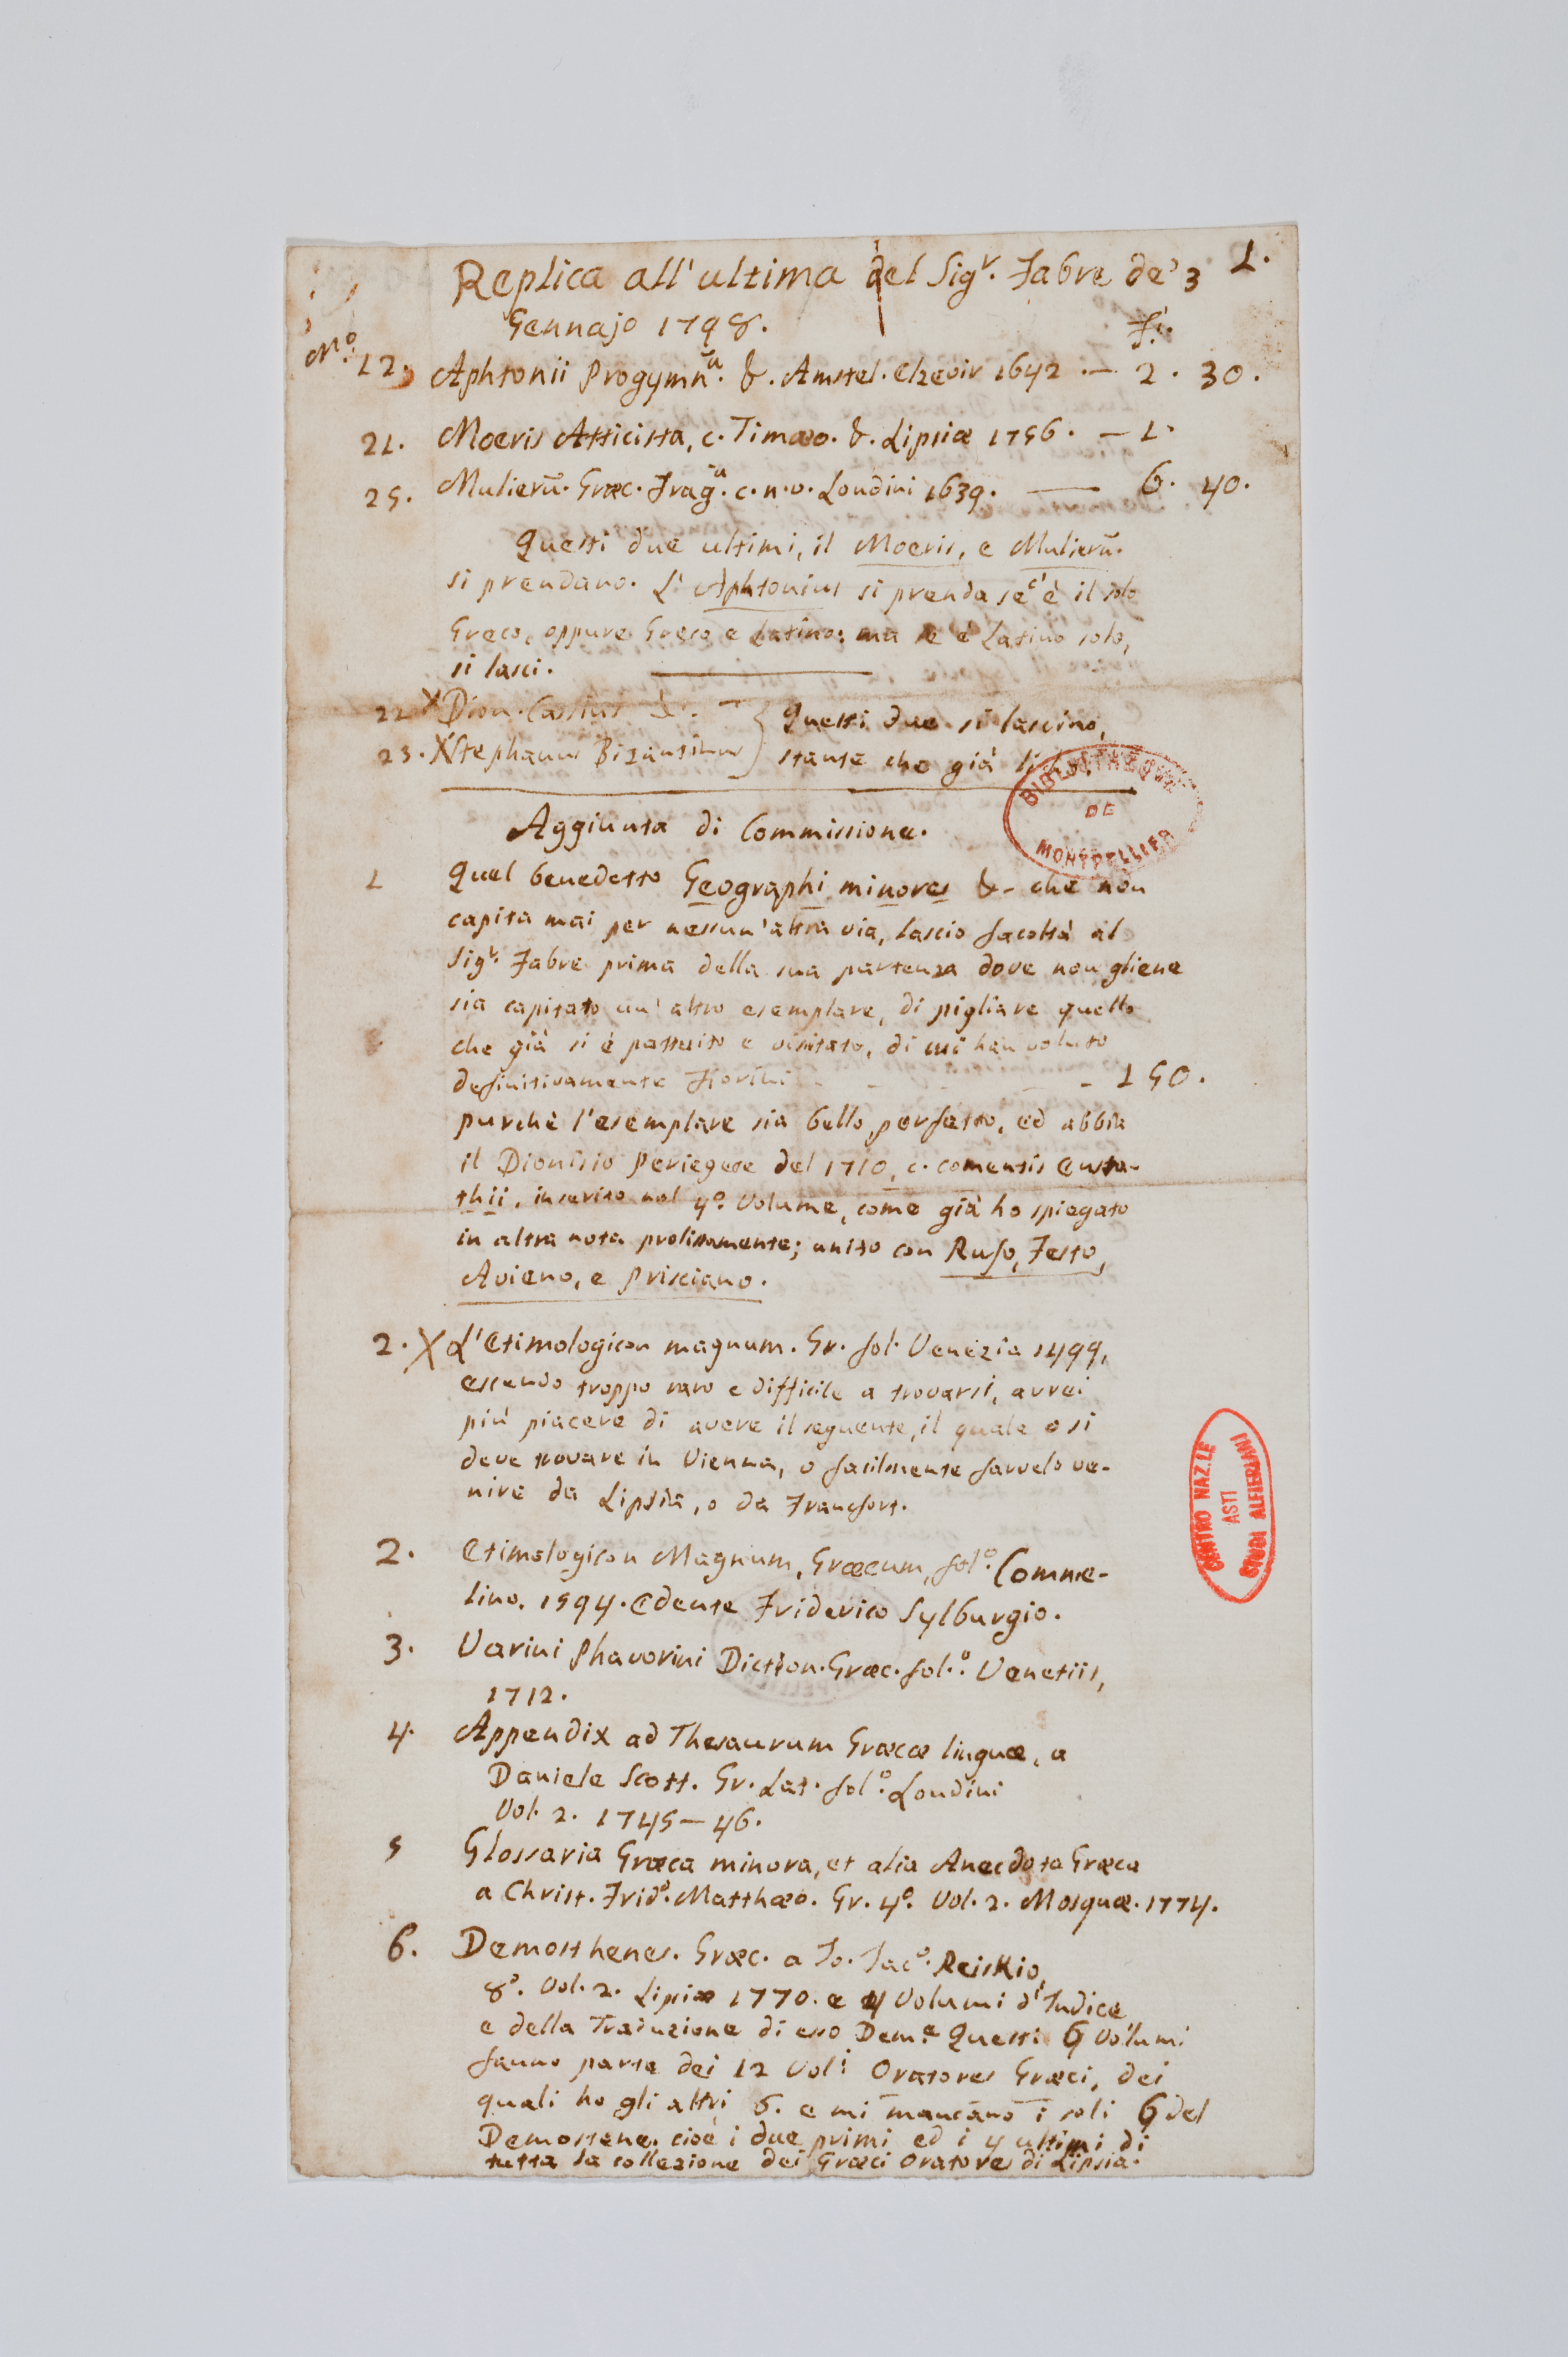 Replica all'ultima del Sigr. Fabre de' 3 1.
Gennajo 1798.
F.i
No. 12. Aphtonii Progymn.a &. Amstel. Elzevir 1642 .— 2 . 30.
21. Moeris Atticista, c. Timæo. &. Lipsiæ 1756. — 1.
25. Mulierū. Græc. Frag.a c. n. v. Londini 1639. — 6. 40.
Questi due ultimi, il Moeris, e Mulierū.
si prendano. L'Aphtonius si prenda se c'è il solo
Greco, oppure Greco e Latino: ma se è Latino solo,
si lasci.
22 X Dion. Cassius &. — } Questi due si lascino,
23. X Stephanus Bizantinus } stante che già li ho.
BIBLIOTHÈQUE DE MONTPELLIER
Aggiunta di Commissione.
1 Quel benedetto Geographi minores &- che non
capita mai per nessun'altra via, lascio facoltà al
Sigr. Fabre prima della sua partenza dove non gliene
sia capitato un'altro esemplare, di pigliare quello
che già si è pattuito e visitato, di cui han voluto
definitivamente Fiorini - - - 150.
purchè l'esemplare sia bello, perfetto, ed abbia
il Dionisio Periegete del 1710, c. comentis Eusta-
thii, inserito nel 4o. Volume, come già ho spiegato
in altra nota prolissamente; unito con Rufo, Festo,
Avieno, e Prisciano.
2. X L'Etimologicon magnum. Gr. fol. Venezia 1499,
essendo troppo raro e difficile a trovarsi, avrei
più piacere di avere il seguente, il quale o si
deve trovare in Vienna, o facilmente farvelo ve-
nire da Lipsia, o da Francfort.
CENTRO NAZ.LE STUDI ALFIERIANI ASTI
2. Etimologicon Magnum, Græcum, fol.o Comme-
lino. 1594. Edente Friderico Sylburgio.
3. Varini Phavorini Diction. Græc. fol.o Venetiis,
1712.
4. Appendix ad Thesaurum Græcæ linguæ, a
Daniele Scott. Gr. Lat. fol.o Londini
Vol. 2. 1745—46.
5 Glossaria Græca minora, et alia Anecdota Græca
a Christ. Frido. Matthæo. Gr. 4o. Vol. 2. Mosquæ. 1774.
6. Demosthenes. Græc. a Jo. Jaco. Reiskio,
8o. Vol. 2. Lipsiæ 1770. e 4 Volumi d'Indice
e della Traduzione di esso Dem.e Questi 6 Volumi
fanno parte dei 12 Vol.i Oratores Græci, dei
quali ho gli altri 6. e mi mancano i soli 6 del
Demostene. cioè i due primi ed i 4 ultimi di
tutta la collezione dei Græci Oratores di Lipsia.